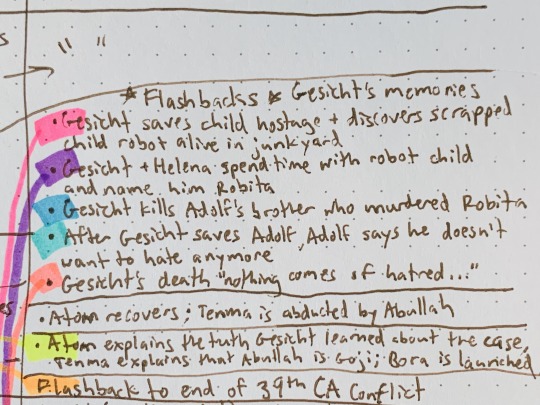 " "
* Flashbacks * Gesicht's memories
• Gesicht saves child hostage + discovers scrapped
child robot alive in junkyard
• Gesicht + Helena spend time with robot child
and name him Robita
• Gesicht kills Adolf's brother who murdered Robita
• After Gesicht saves Adolf, Adolf says he doesn't
want to hate anymore
• Gesicht's death "nothing comes of hatred..."
• Atom recovers; Tenma is abducted by Abullah
• Atom explains the truth Gesicht learned about the case,
Tenma explains that Abullah is Goji; Bora is launched
Flashback to end of 39th CA Conflict